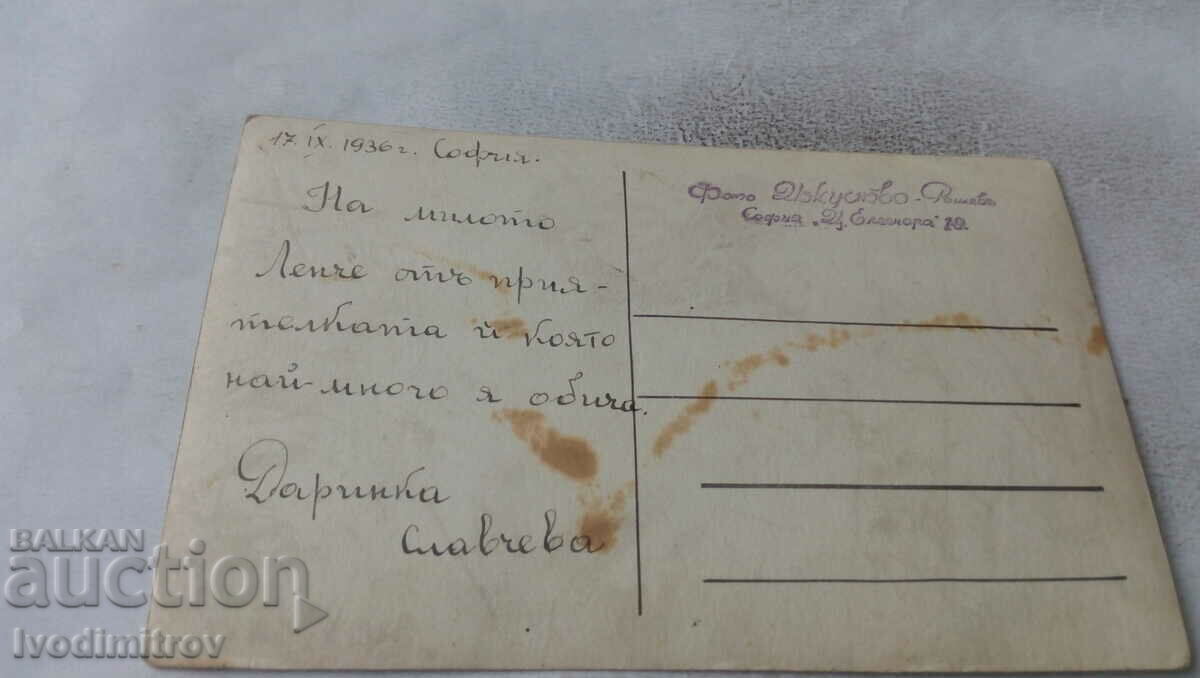 17. IX. 1936 г. София.
На милото
Ленче отъ прия-
телката й която
най-много я обича.
Даринка
Славчева
Фото Изкуство -
София „Ц. Елеонора"
BALKAN
auction
Ivodimitrov